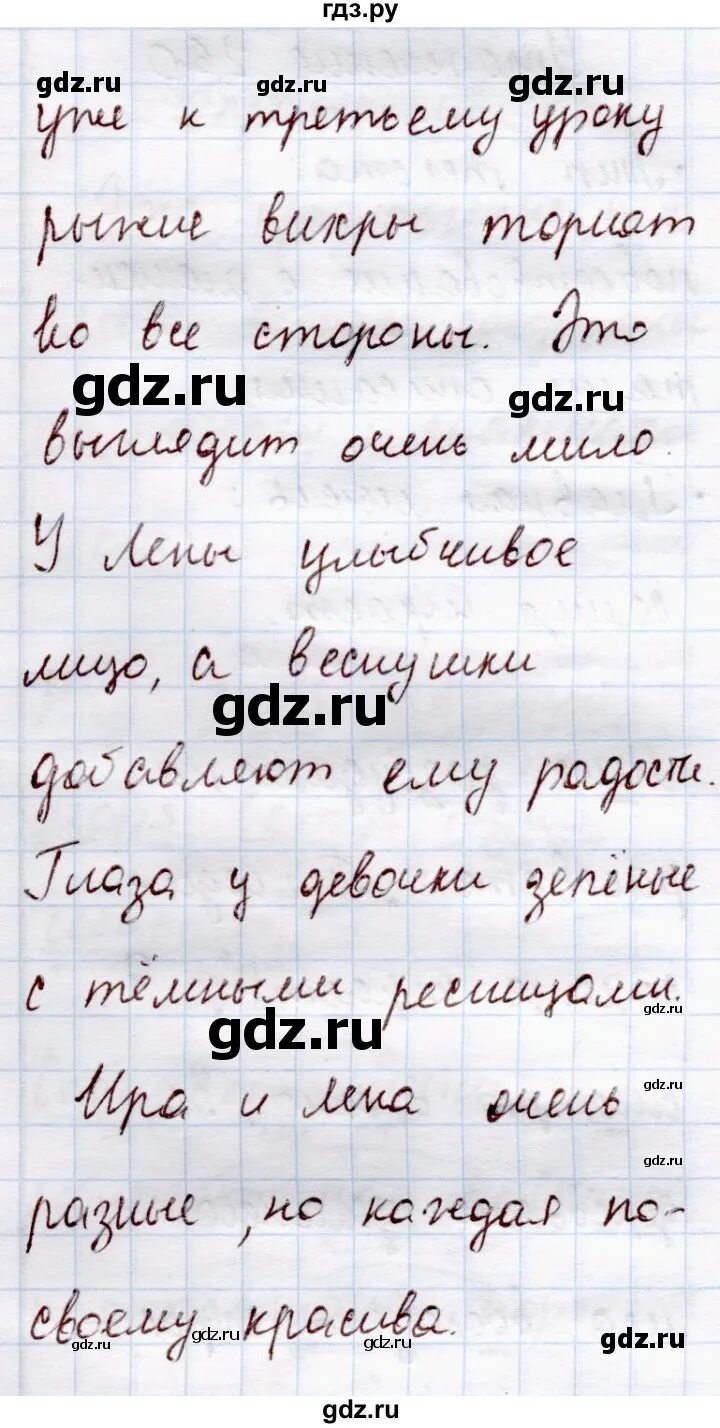 гдз.ру
gdz.ru gdz.ru gdz.ru
уже к третьему уроку
рыжие вихры торчат
во все стороны. Это
gdz.ru gdz.ru
выглядит очень мило.
У Лены улыбчивое
лицо, а веснушки
gdz.ru
добавляют ему радости.
Глаза у девочки зелёные
с тёмными ресницами.
gdz.ru
gdz.ru
Ира и Лена очень
gdz.ru
gdz.ru
разные, но каждая по-
своему красива.
gdz.ru gdz.ru gdz.ru gdz.ru
gdz.ru